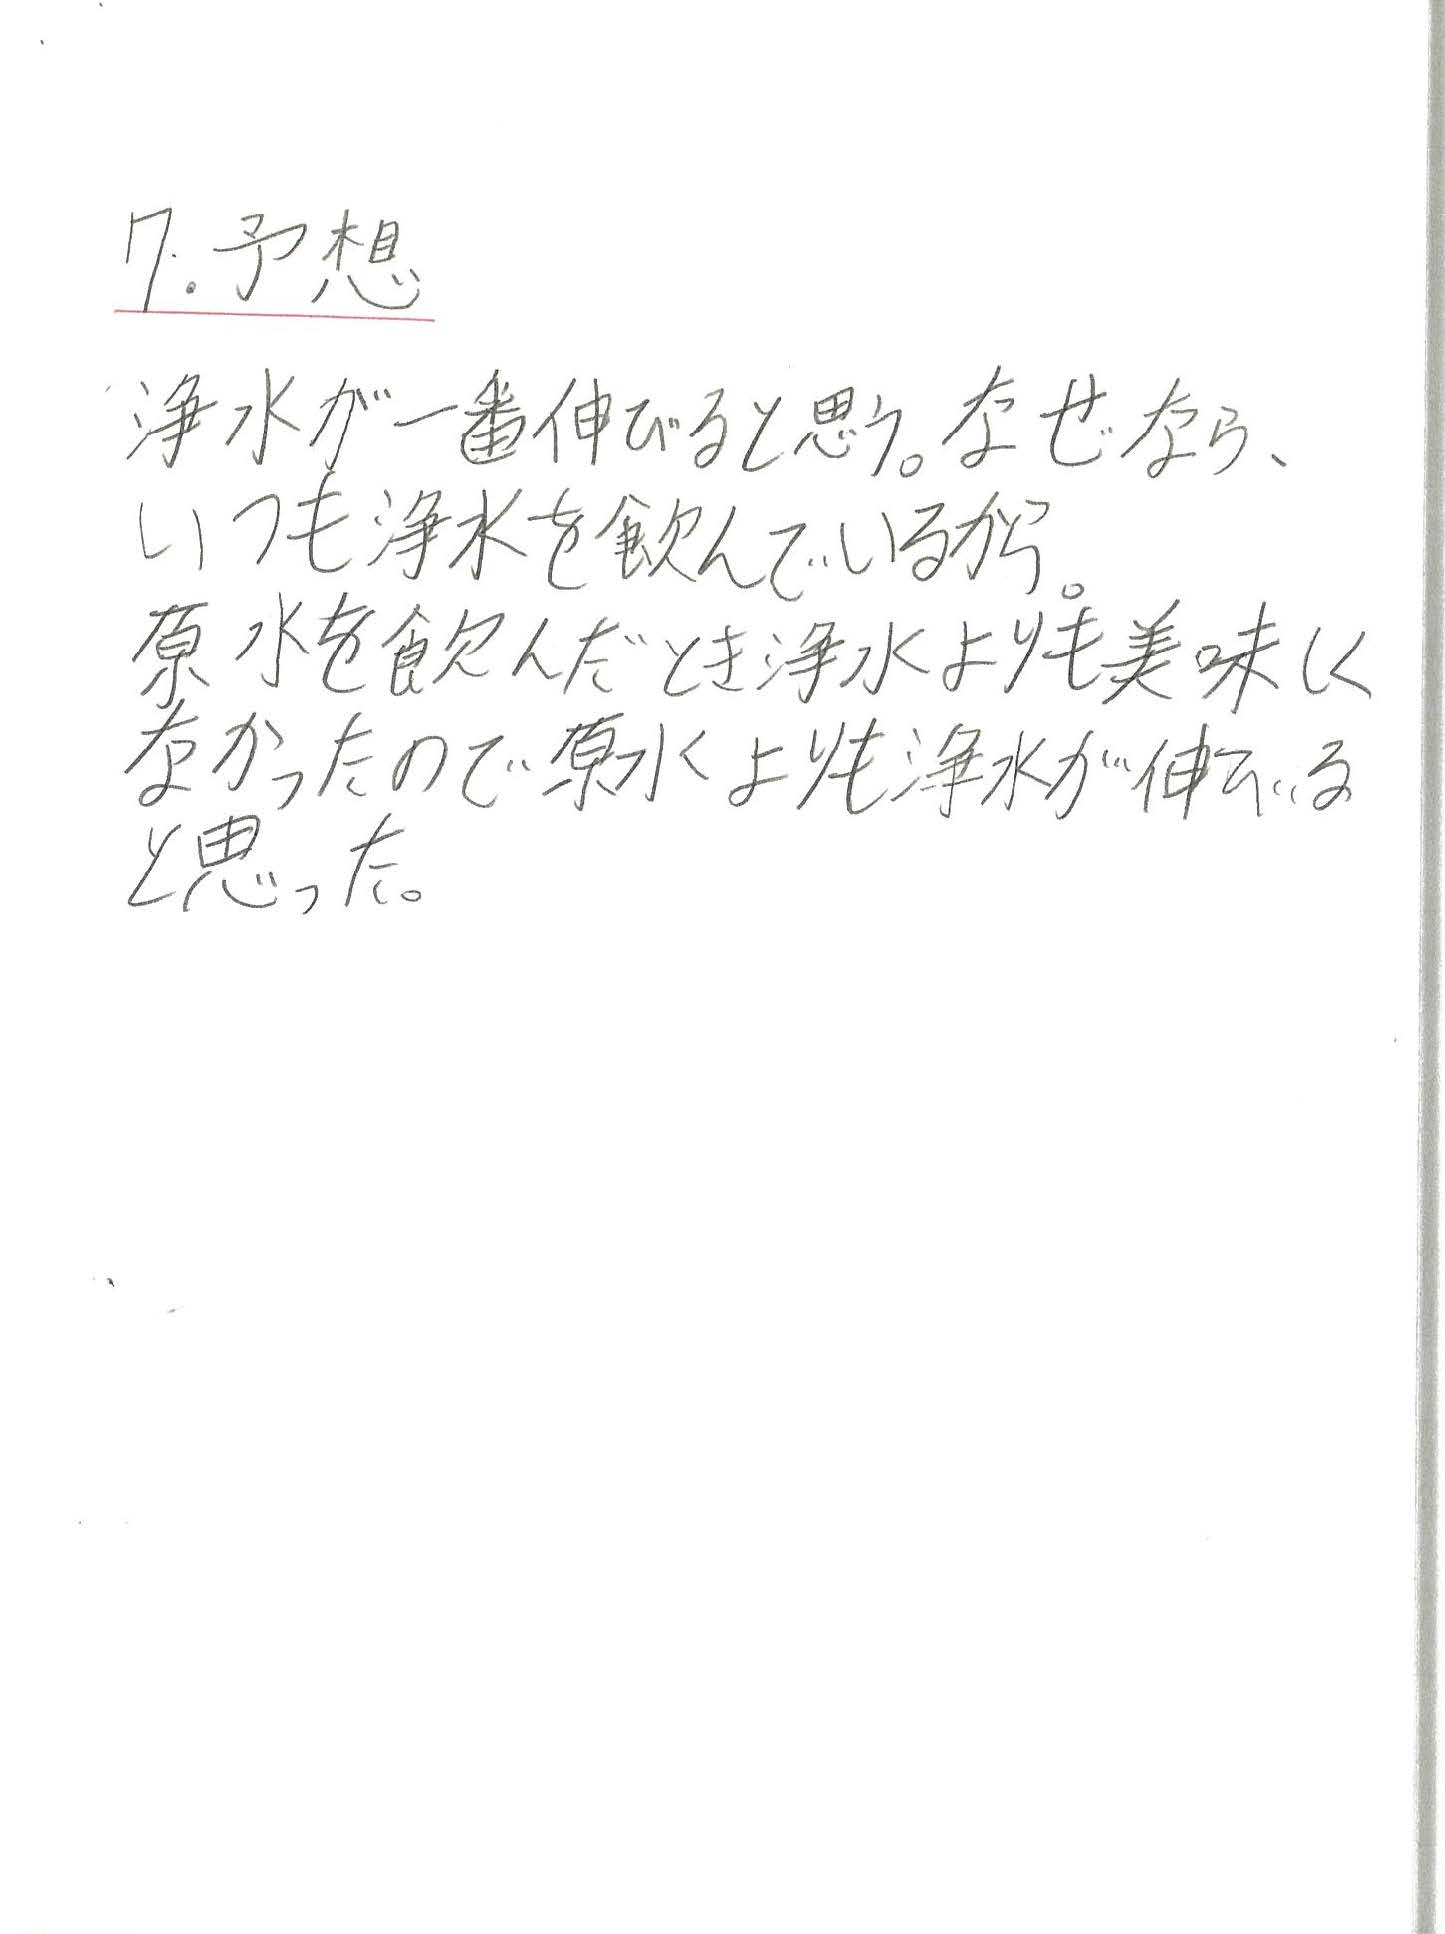 7.予想
浄水が一番伸びると思う。なぜなら、
いつも浄水を飲んでいるから。
原水を飲んだとき浄水よりも美味しく
なかったので原水よりも浄水が伸びる
と思った。